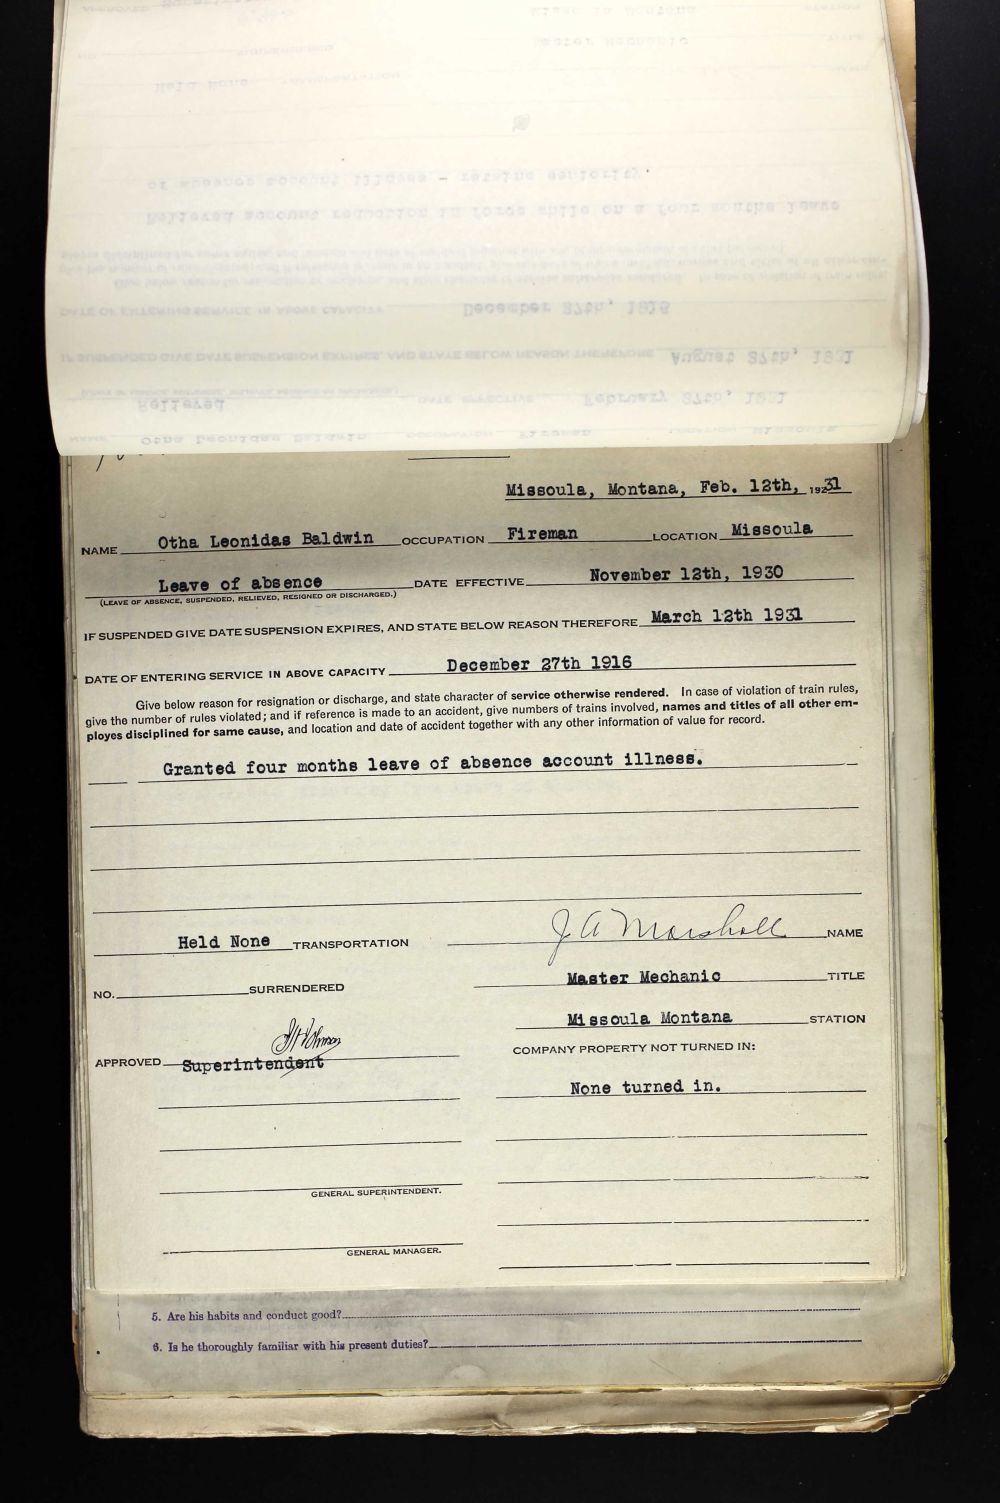 Missoula, Montana, Feb. 12th, 1931
NAME Otha Leonidas Baldwin OCCUPATION Fireman LOCATION Missoula
Leave of absence DATE EFFECTIVE November 12th, 1930
(LEAVE OF ABSENCE, SUSPENDED, RELIEVED, RESIGNED OR DISCHARGED.)
IF SUSPENDED GIVE DATE SUSPENSION EXPIRES, AND STATE BELOW REASON THEREFORE March 12th 1931
DATE OF ENTERING SERVICE IN ABOVE CAPACITY December 27th 1916
Give below reason for resignation or discharge, and state character of service otherwise rendered. In case of violation of train rules,
give the number of rules violated; and if reference is made to an accident, give numbers of trains involved, names and titles of all other em-
ployes disciplined for same cause, and location and date of accident together with any other information of value for record.
Granted four months leave of absence account illness.
Held None TRANSPORTATION
J A Marshall NAME
NO. SURRENDERED
Master Mechanic TITLE
Missoula Montana STATION
APPROVED Superintendent
COMPANY PROPERTY NOT TURNED IN:
None turned in.
GENERAL SUPERINTENDENT.
GENERAL MANAGER.
5. Are his habits and conduct good?
6. Is he thoroughly familiar with his present duties?